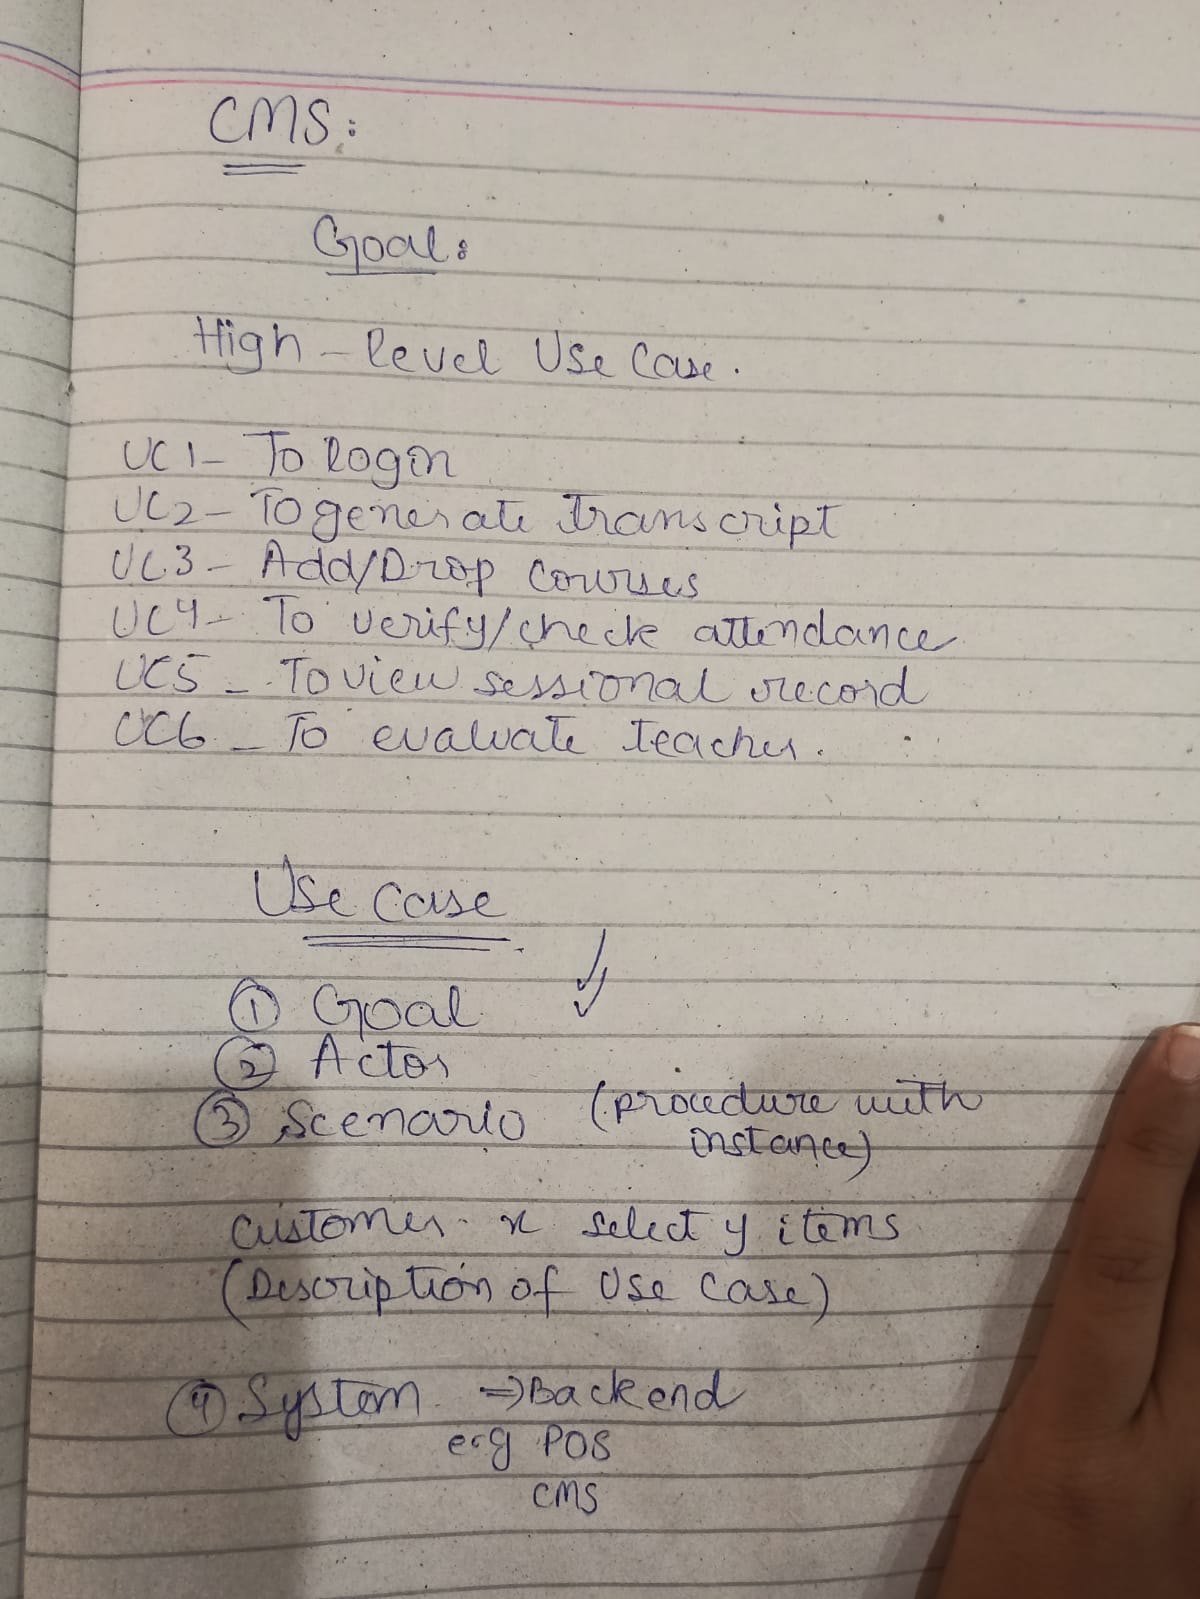 CMS:
Goal:
High-level Use Case.
UC1- To login
UC2- To generate transcript
UC3- Add/Drop courses
UC4- To verify/check attendance
UC5- To view sessional record
UC6- To evaluate teacher.
Use case
① Goal
② Actor
③ Scenario (procedure with
instance)
Customer x select y items
(Description of Use Case)
④ System ⇒ Backend
e.g POS
CMS